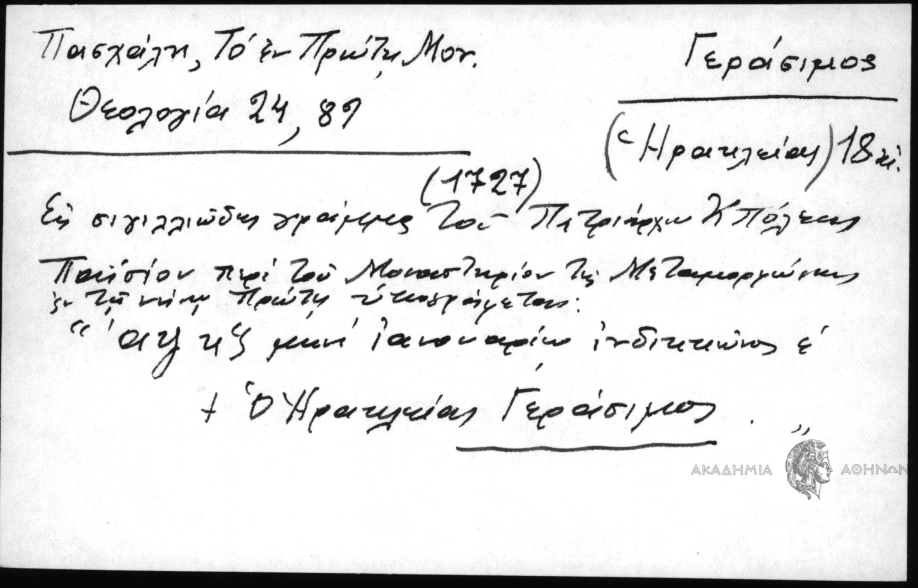 Πασχάλη, Τό ἐν Πρώτῃ Μον.
Θεολογία 24, 89
Γεράσιμος
(Ἡρακλείας) 18 αἰ.
(1727)
Εἰς σιγιλλιῶδες γράμμα τοῦ Πατριάρχου Κπόλεως
Παϊσίου περί τοῦ Μοναστηρίου τῆς Μεταμορφώσεως
ἐν τῇ νήσῳ Πρώτῃ ὑπογράφεται:
"͵αψκζ μηνί ἰανουαρίῳ ἰνδικτιῶνος ε
+ Ὁ Ἡρακλείας Γεράσιμος . "
ΑΚΑΔΗΜΙΑ ΑΘΗΝΩΝ